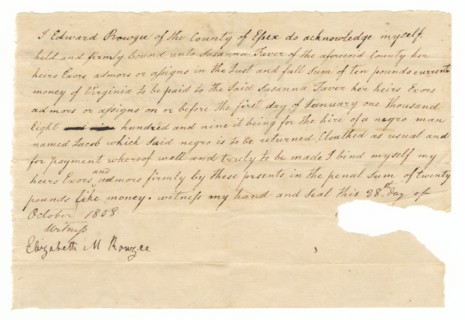 I Edward Rowzee of the County of Essex do acknowledge myself
held and firmly bound unto Susanna Faver of the aforesaid County her
heirs Exors admors or assigns in the Just and full Sum of ten pounds currente
money of Virginia to be paid to the Said Susanna Faver her heirs Exors
admors or assigns on or before the first day of January one Thousand
Eight hundred and nine it being for the hire of a negro man
named Jacob which Said negro is to be returned Cloathed as usual and
for payment whereof well and truly to be made I bind myself my
heirs Exors and admors firmly by these presents in the penal Sum of twenty
pounds like money. witness my hand and Seal this 28th Day of
October 1808
Witness
Elizabeth M Rowzee